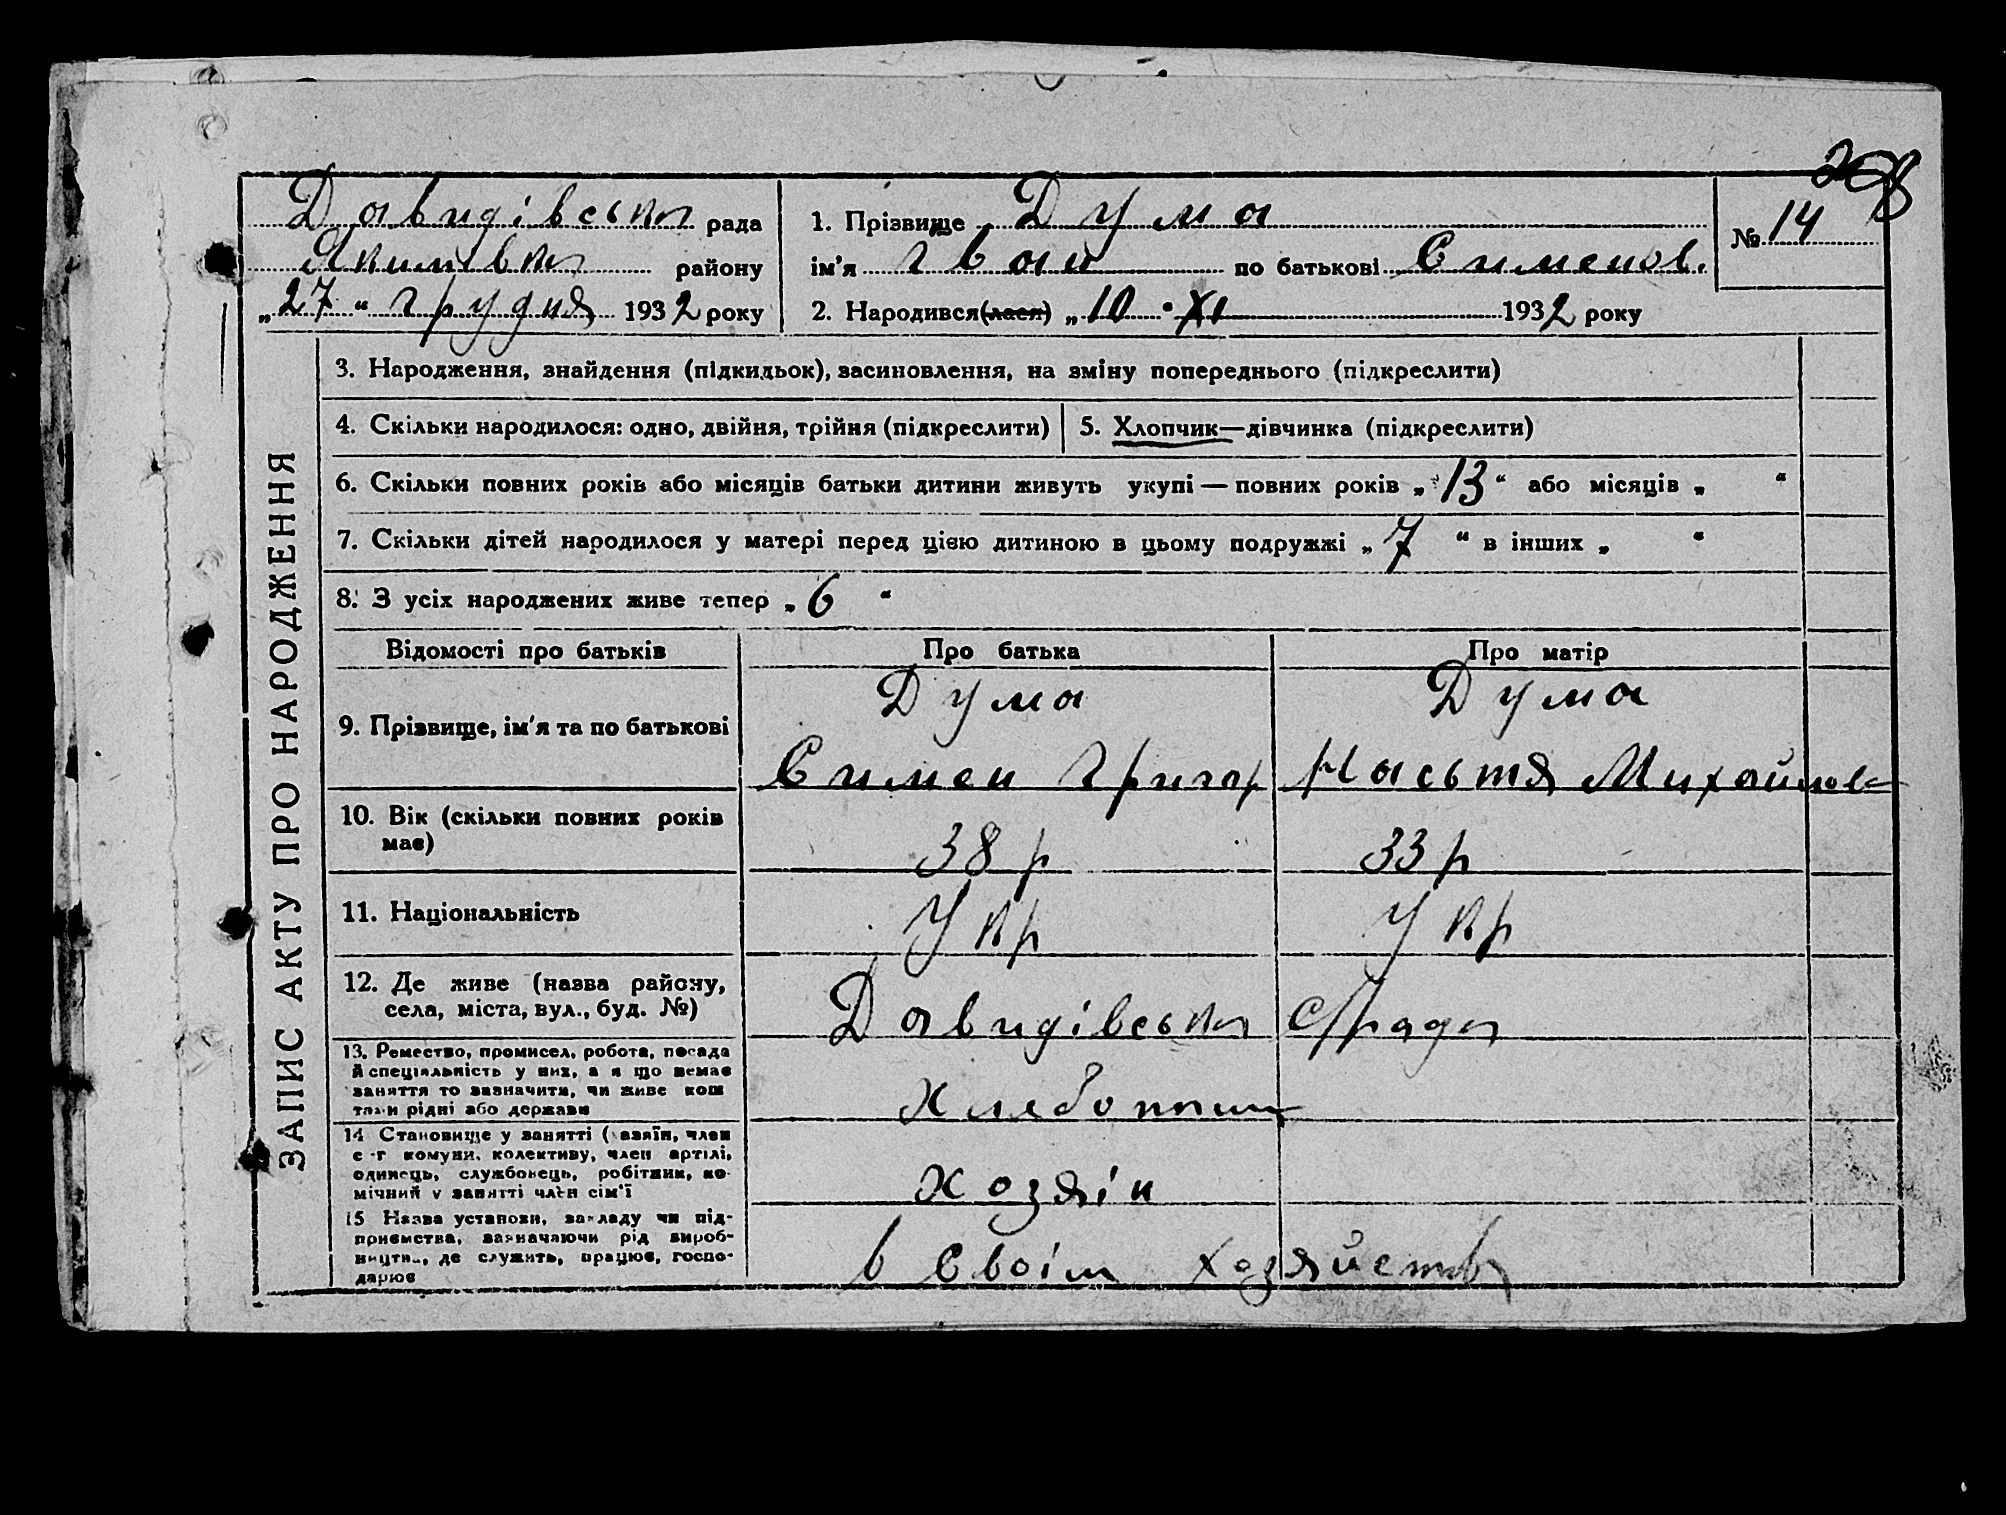 208
Давидівська рада
Якимівка району
„27“ грудня 1932 року
1. Прізвище Дума
ім’я Іван по батькові Сименов.
2. Народився(лася) „10“ XI 1932 року
№ 14
ЗАПИС АКТУ ПРО НАРОДЖЕННЯ
3. Народження, знайдення (підкидьок), засиновлення, на зміну попереднього (підкреслити)
4. Скільки народилося: одно, двійня, трійня (підкреслити)
5. Хлопчик—дівчинка (підкреслити)
6. Скільки повних років або місяців батьки дитини живуть укупі — повних років „13“ або місяців „ “
7. Скільки дітей народилося у матері перед цією дитиною в цьому подружжі „7 “ в інших „ “
8. З усіх народжених живе тепер „6 “
Відомості про батьків
Про батька
Про матір
9. Прізвище, ім’я та по батькові
Дума
Симен Григор
Дума
Насьтя Михайлов
10. Вік (скільки повних років
має)
38 р
33 р
11. Національність
Укр
Укр
12. Де живе (назва району,
села, міста, вул., буд. №)
Давидівська с/рада
13. Ремество, промисел, робота, посада
й спеціяльність у них, а я що немає
заняття то зазначити, чи живе кош
тами рідні або держави
хлебопашц
14 Становище у занятті (хазяїн, член
с-г комуни, колективу, член артілі,
одинець, службовець, робітник, по-
мічний у занятті член сім’ї
хозяін
15 Назва установи, закладу чи під-
приємства, зазначаючи рід вироб-
ництва, де служить, працює, госпо-
дарює
в своім хозяйства